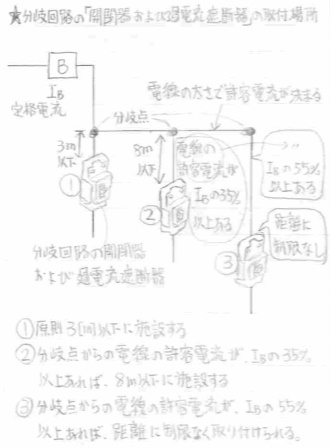 ★分岐回路の「開閉器および過電流遮断器」の取付場所
B
IB
定格電流
分岐点
電線の太さで許容電流が決まる
3m
以下
8m
以下
電線の
許容電流が
IBの35%
以上ある
IBの55%
以上ある
①
②
③
距離に
制限なし
分岐回路の開閉器
および過電流遮断器
①原則3[m]以下に施設する
②分岐点からの電線の許容電流が、IBの35%
以上あれば、8m以下に施設する
③分岐点からの電線の許容電流が、IBの55%
以上あれば、距離に制限なく取り付けられる。